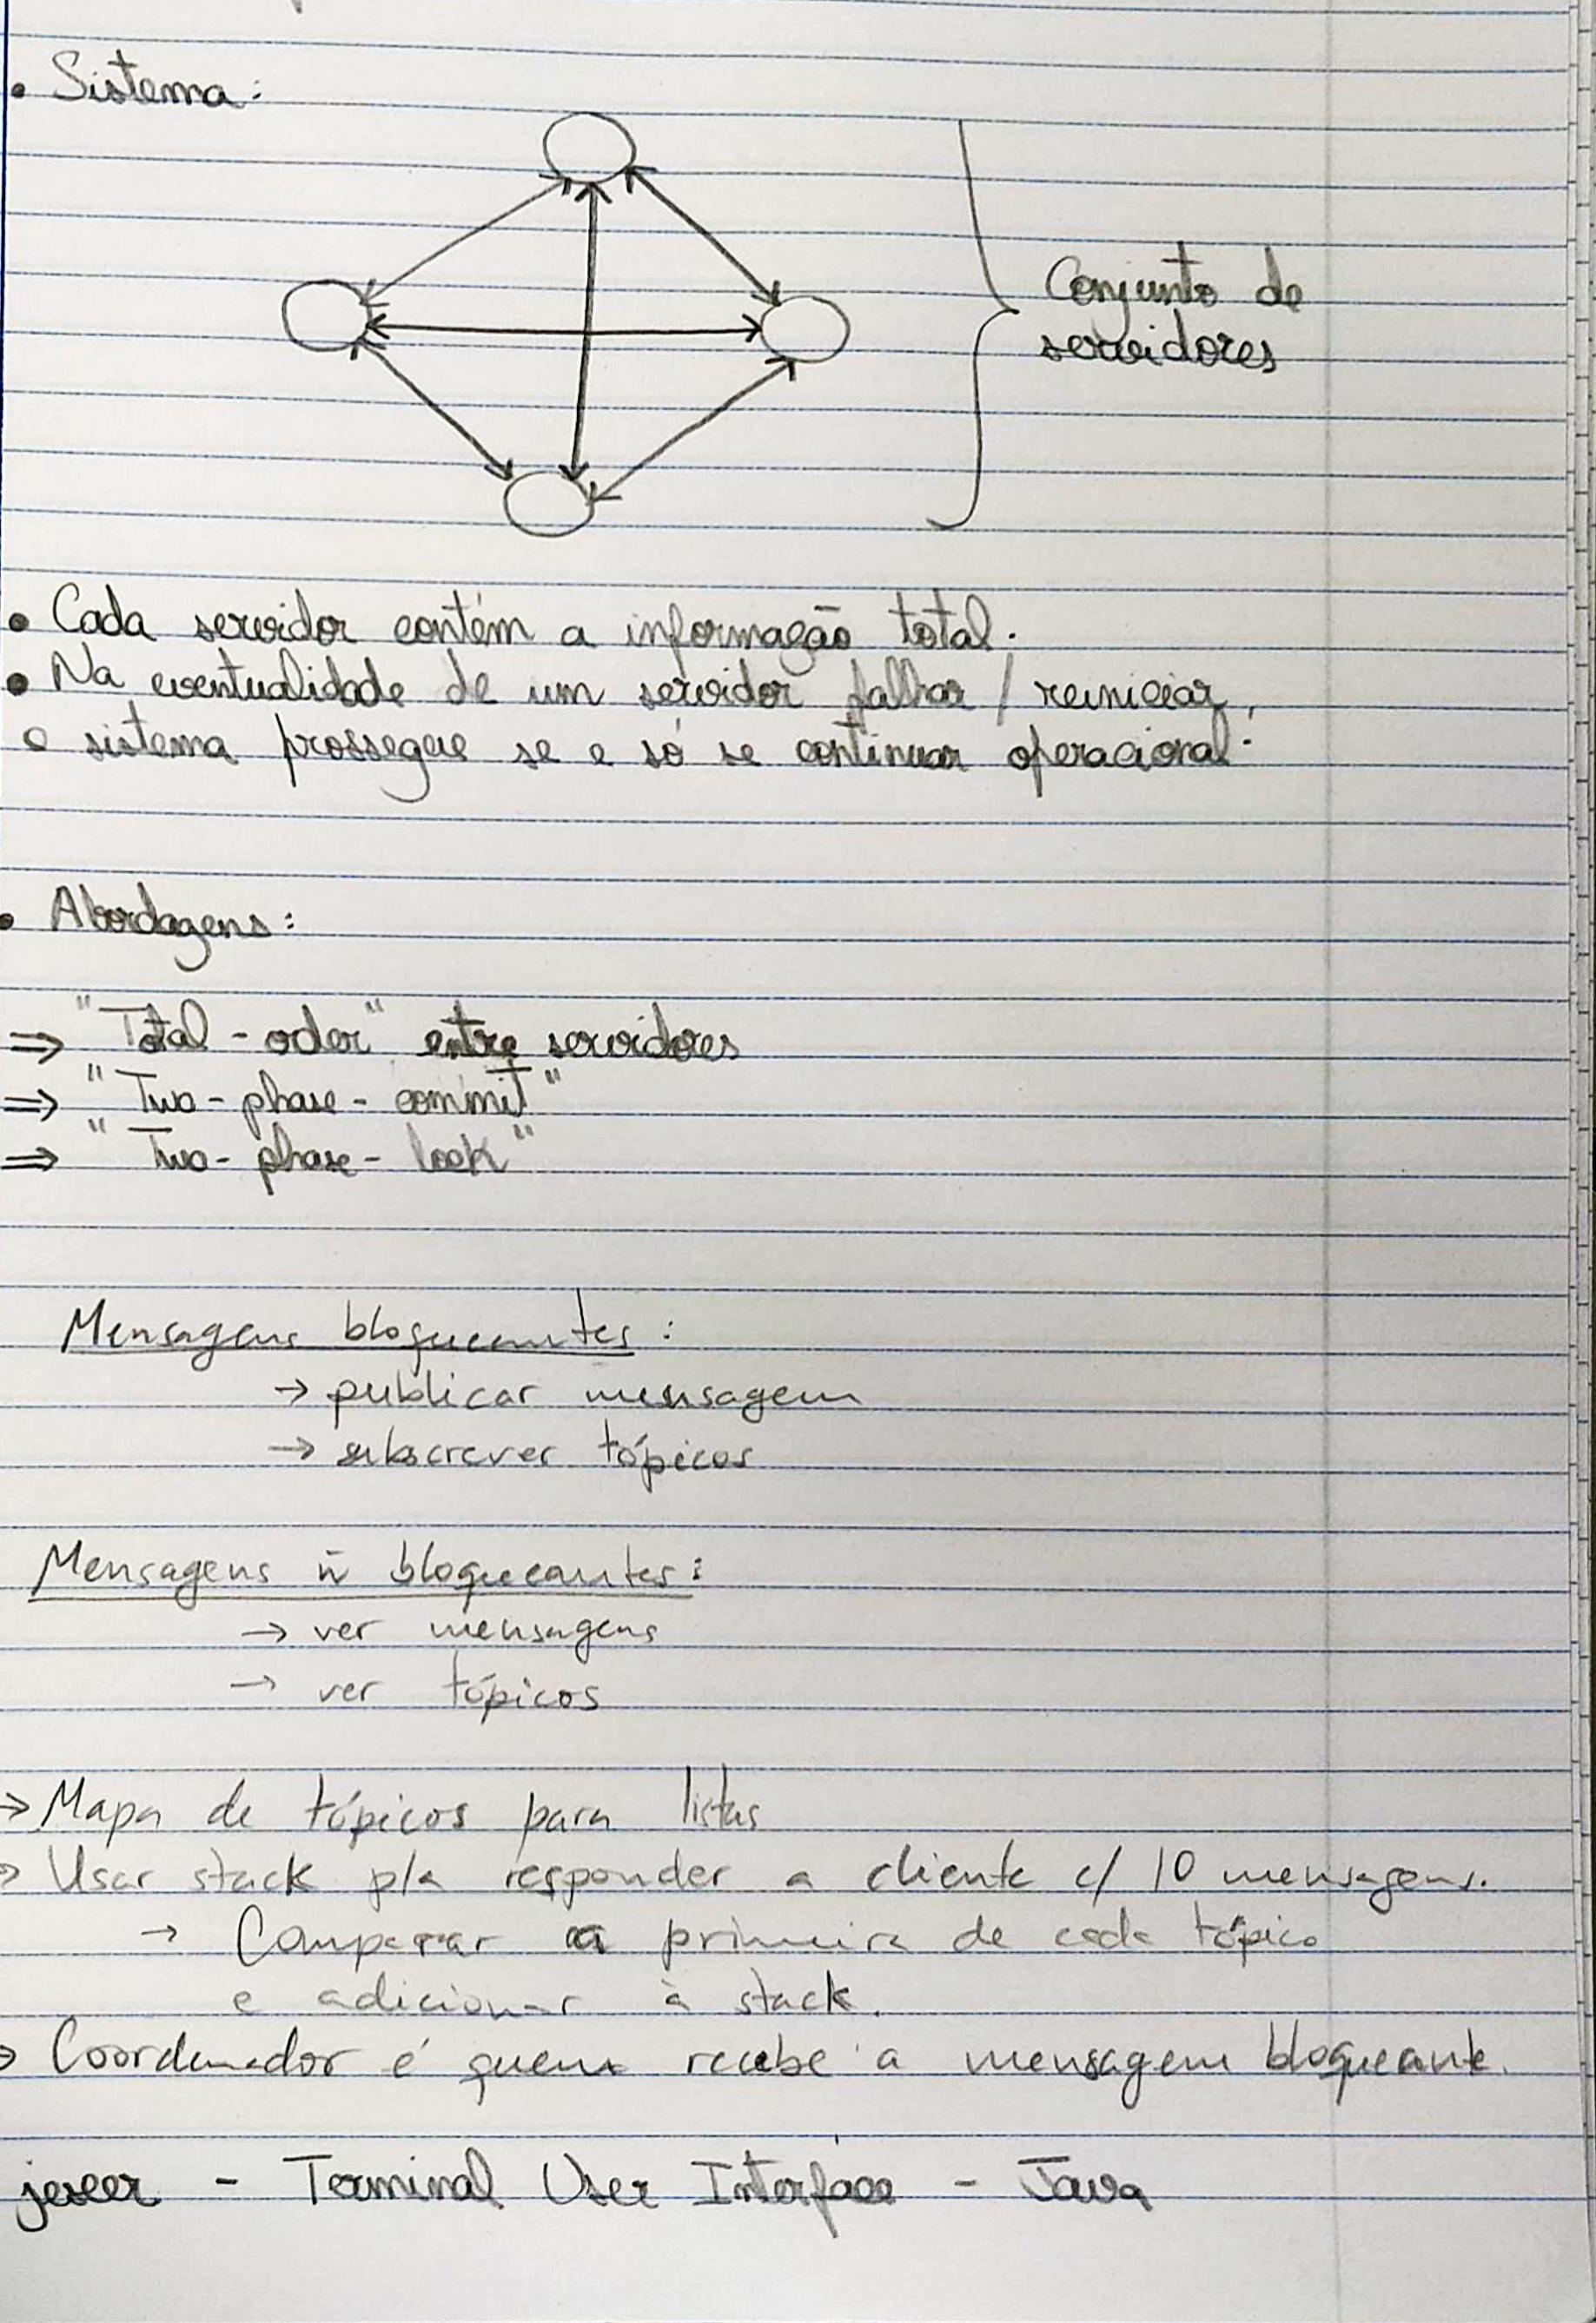 • Sistema:
Conjunto de
servidores
• Cada servidor contém a informação total.
• Na eventualidade de um servidor falhar / reiniciar,
o sistema prossegue se e só se continuar operacional.
• Abordagens:
⇒ "Total - oder" entre servidores
⇒ "Two - phase - commit"
⇒ "Two - phase - lock"
Mensagens bloqueantes:
→ publicar mensagem
→ subscrever tópicos
Mensagens ñ bloqueantes:
→ ver mensagens
→ ver tópicos
→ Mapa de tópicos para listas
→ Usar stack p/a responder a cliente c/ 10 mensagens.
→ Comparar a primeira de cada tópico
e adicionar à stack.
→ Coordenador é quem recebe a mensagem bloqueante.
- Terminal User Interface - Java